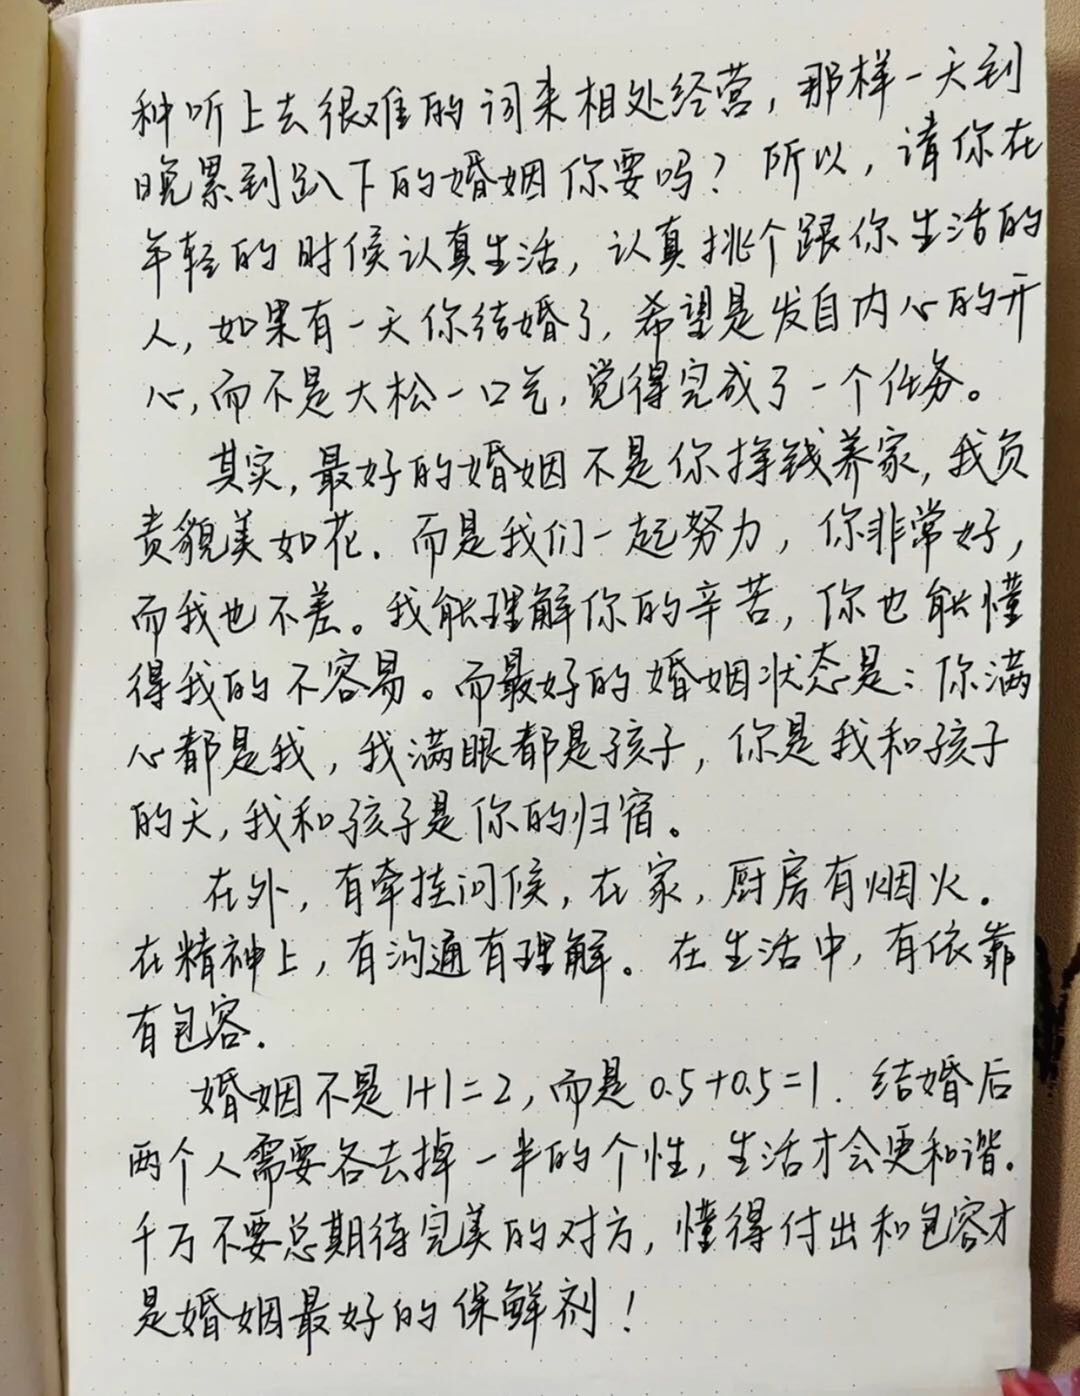 种听上去很难的词来相处经营，那样一天到
晚累到趴下的婚姻你要吗？所以，请你在
年轻的时候认真生活，认真挑个跟你生活的
人，如果有一天你结婚了，希望是发自内心的开
心，而不是大松一口气，觉得完成了一个任务。
其实，最好的婚姻不是你挣钱养家，我负
责貌美如花．而是我们一起努力，你非常好，
而我也不差。我能理解你的辛苦，你也能懂
得我的不容易。而最好的婚姻状态是：你满
心都是我，我满眼都是孩子，你是我和孩子
的天，我和孩子是你的归宿。
在外，有牵挂问候，在家，厨房有烟火．
在精神上，有沟通有理解。在生活中，有依靠
有包容．
婚姻不是1+1=2，而是0.5+0.5=1．结婚后
两个人需要各去掉一半的个性，生活才会更和谐．
千万不要总期待完美的对方，懂得付出和包容才
是婚姻最好的保鲜剂！